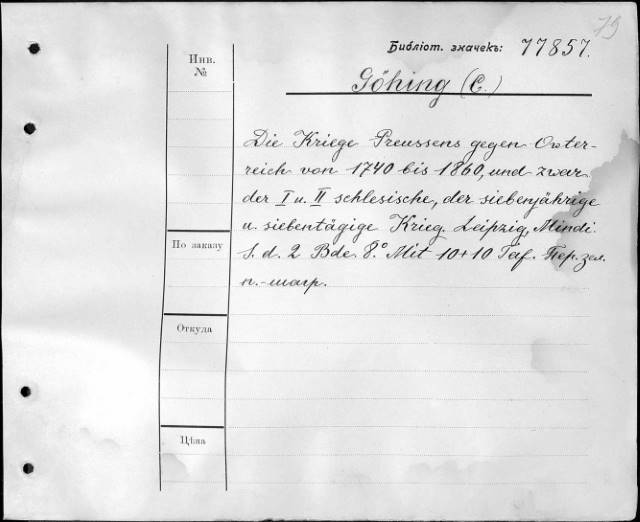 79
Библіот. значекъ: 77857.
Инв.
№
Göhing (C.)
Die Kriege Preussens gegen Oester-
reich von 1740 bis 1860, und zwar
der I u. II schlesische, der siebenjährige
u. siebentägige Krieg. Leipzig, Mindi.
S. d. 2 Bde. 8.° Mit 10+10 Taf. Пер. зел.
п.-шагр.
По заказу
Откуда
Цѣна